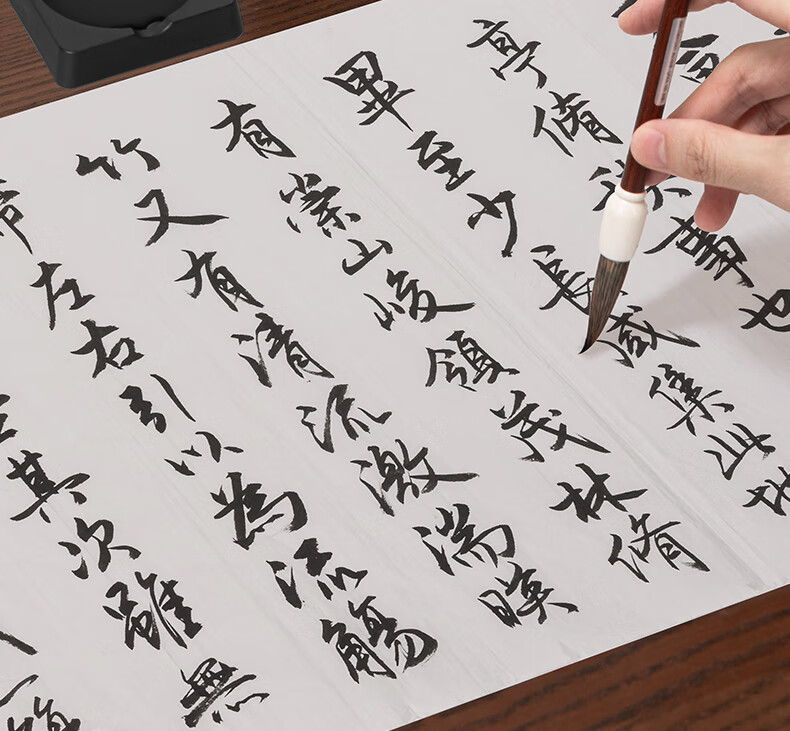 亭脩禊事也
畢至少長咸集此地
有崇山峻領茂林脩
竹又有清流激湍暎
左右引以為流觴
其次雖無